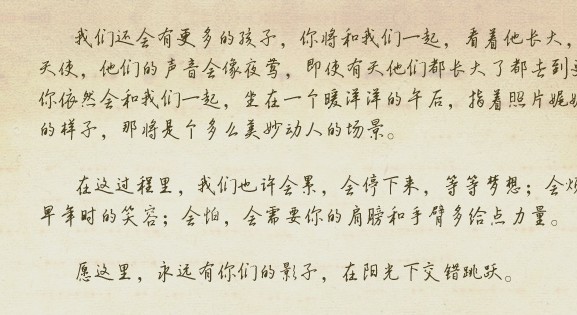 我们还会有更多的孩子，你将和我们一起，看着他长大，
天使，他们的声音会像夜莺，即使有天他们都长大了都去到
你依然会和我们一起，坐在一个暖洋洋的午后，指着照片娓
的样子，那将是个多么美妙动人的场景。
在这过程里，我们也许会累，会停下来，等等梦想；会
早年时的笑容；会怕，会需要你的肩膀和手臂多给点力量。
愿这里，永远有你们的影子，在阳光下交错跳跃。